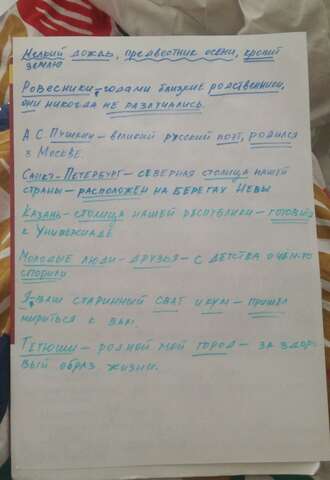 Мелкий дождь, предвестник осени, кропит
землю
Ровесники, годами близкие родственники,
они никогда не разлучались.
А С Пушкин – великий русский поэт, родился
в Москве.
Санкт-Петербург – северная столица нашей
страны – расположен на берегах Невы
Казань – столица нашей республики – готовится
к Универсиаде
Молодые люди – друзья – с детства о чем-то
спорили.
Я, ваш старинный сват и кум – пришёл
мириться к вам.
Тетюши – родной мой город – за здоро
вый образ жизни.